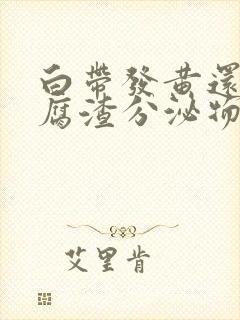 白帶發黃還
腐渣分泌物
艾里肯